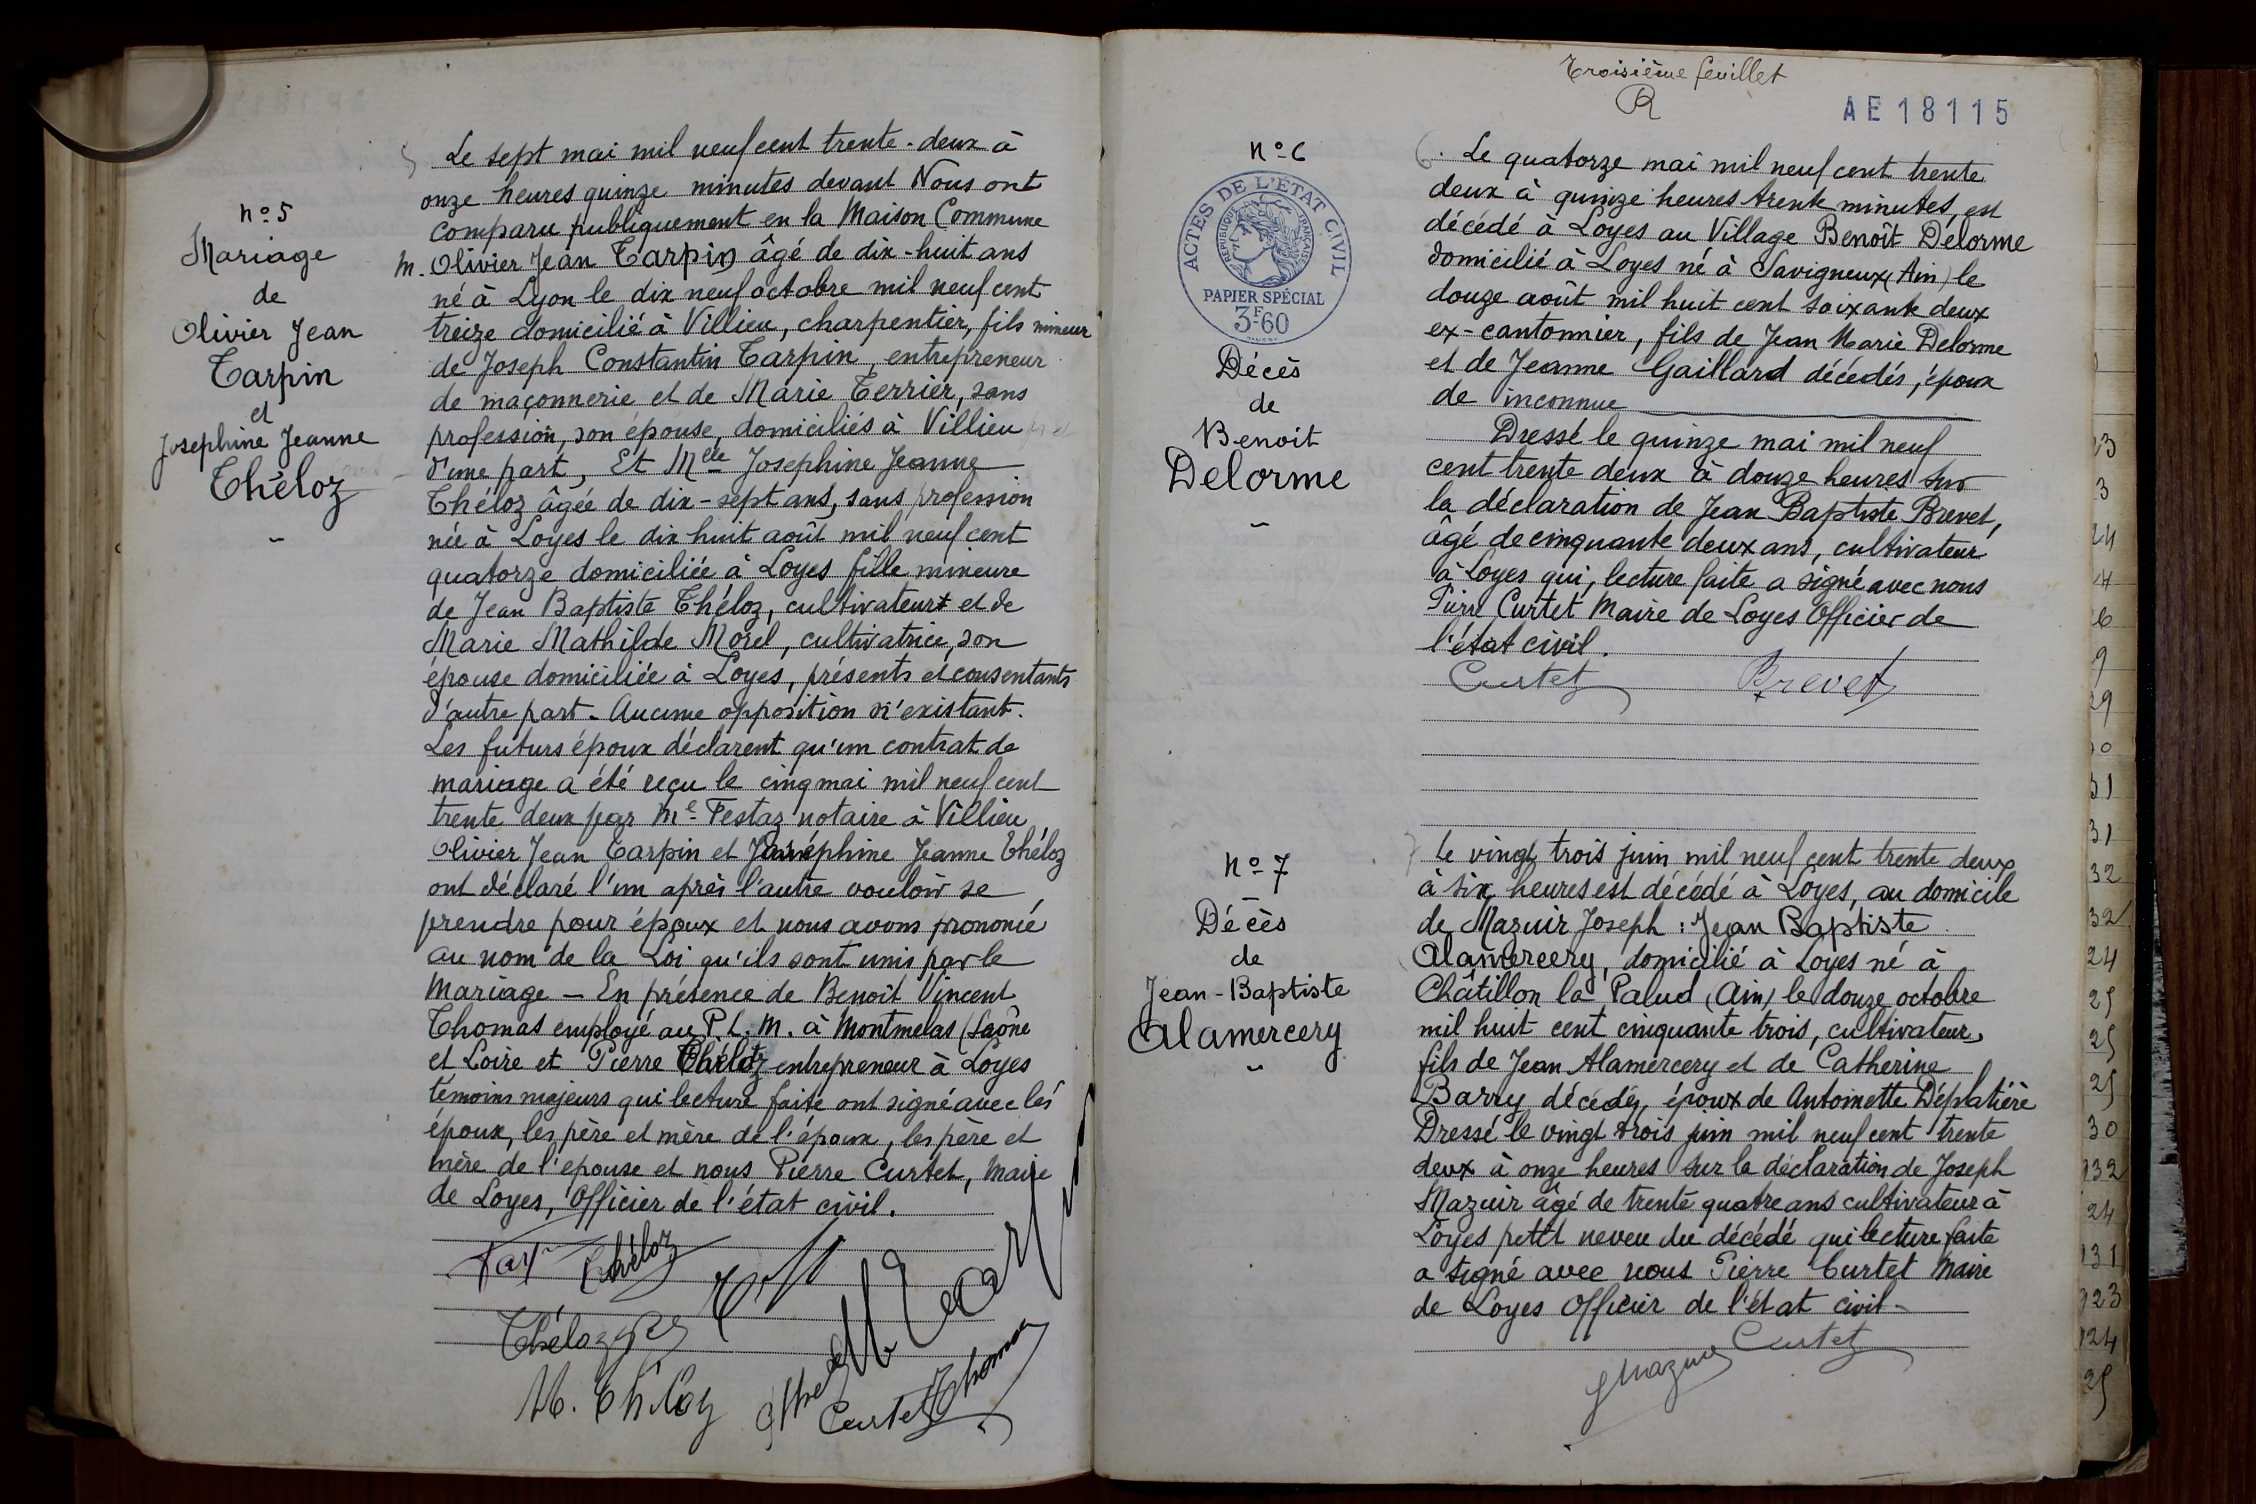 n° 5
Mariage
de
Olivier Jean
Tarpin
et
Josephine Jeanne
Théloz
Le sept mai mil neuf cent trente-deux à
onze heures quinze minutes devant Nous ont
comparu publiquement en la Maison Commune
M. Olivier Jean Tarpin âgé de dix-huit ans
né à Lyon le dix neuf octobre mil neuf cent
treize domicilié à Villieu, charpentier, fils mineur
de Joseph Constantin Tarpin, entrepreneur
de maçonnerie et de Marie Terrier, sans
profession, son épouse, domiciliés à Villieu
d'une part, Et Melle Josephine Jeanne
Théloz âgée de dix-sept ans, sans profession
née à Loyes le dix huit août mil neuf cent
quatorze domiciliée à Loyes fille mineure
de Jean Baptiste Théloz, cultivateur et de
Marie Mathilde Morel, cultivatrice, son
épouse domiciliée à Loyes, présents et consentants
d'autre part. Aucune opposition n'existant.
Les futurs époux déclarent qu'un contrat de
mariage a été reçu le cinq mai mil neuf cent
trente deux par Me Festaz notaire à Villieu
Olivier Jean Tarpin et Joséphine Jeanne Théloz
ont déclaré l'un après l'autre vouloir se
prendre pour époux et nous avons prononcé
au nom de la Loi qu'ils sont unis par le
Mariage — En présence de Benoît Vincent
Thomas employé au P.L.M. à Montmelas (Saône
et Loire et Pierre Théloz entrepreneur à Loyes
témoins majeurs qui lecture faite ont signé avec les
époux, les père et mère de l'époux, les père et
mère de l'epouse et nous Pierre Curtet, Maire
de Loyes, Officier de l'état civil.
Théloz
Théloz
M. Théloz
Thomas
Curtet
Troisième feuillet
R
AE 18115
n° 6
ACTES DE L'ÉTAT CIVIL
RÉPUBLIQUE FRANÇAISE
PAPIER SPÉCIAL
3F60
Décès
de
Benoit
Delorme
6. Le quatorze mai mil neuf cent trente
deux à quinze heures trente minutes, est
décédé à Loyes au Village Benoît Delorme
domicilié à Loyes né à Savigneux (Ain) le
douze août mil huit cent soixante deux
ex-cantonnier, fils de Jean Marie Delorme
et de Jeanne Gaillard décédés, époux
de inconnue
Dressé le quinze mai mil neuf
cent trente deux à douze heures sur
la déclaration de Jean Baptiste Brevet,
âgé de cinquante deux ans, cultivateur
à Loyes qui, lecture faite a signé avec nous
Pierre Curtet Maire de Loyes Officier de
l'état civil.
Curtet Brevet
n° 7
Décès
de
Jean-Baptiste
Alamercery
7 Le vingt trois juin mil neuf cent trente deux
à six heures est décédé à Loyes, au domicile
de Mazuir Joseph : Jean Baptiste
Alamercery, domicilié à Loyes né à
Châtillon la Palud (Ain) le douze octobre
mil huit cent cinquante trois, cultivateur,
fils de Jean Alamercery et de Catherine
Barry décédés, époux de Antoinette Déplatière
Dressé le vingt trois juin mil neuf cent trente
deux à onze heures sur la déclaration de Joseph
Mazuir âgé de trente quatre ans cultivateur à
Loyes petit neveu du décédé qui lecture faite
a signé avec nous Pierre Curtet Maire
de Loyes Officier de l'état civil
Curtet